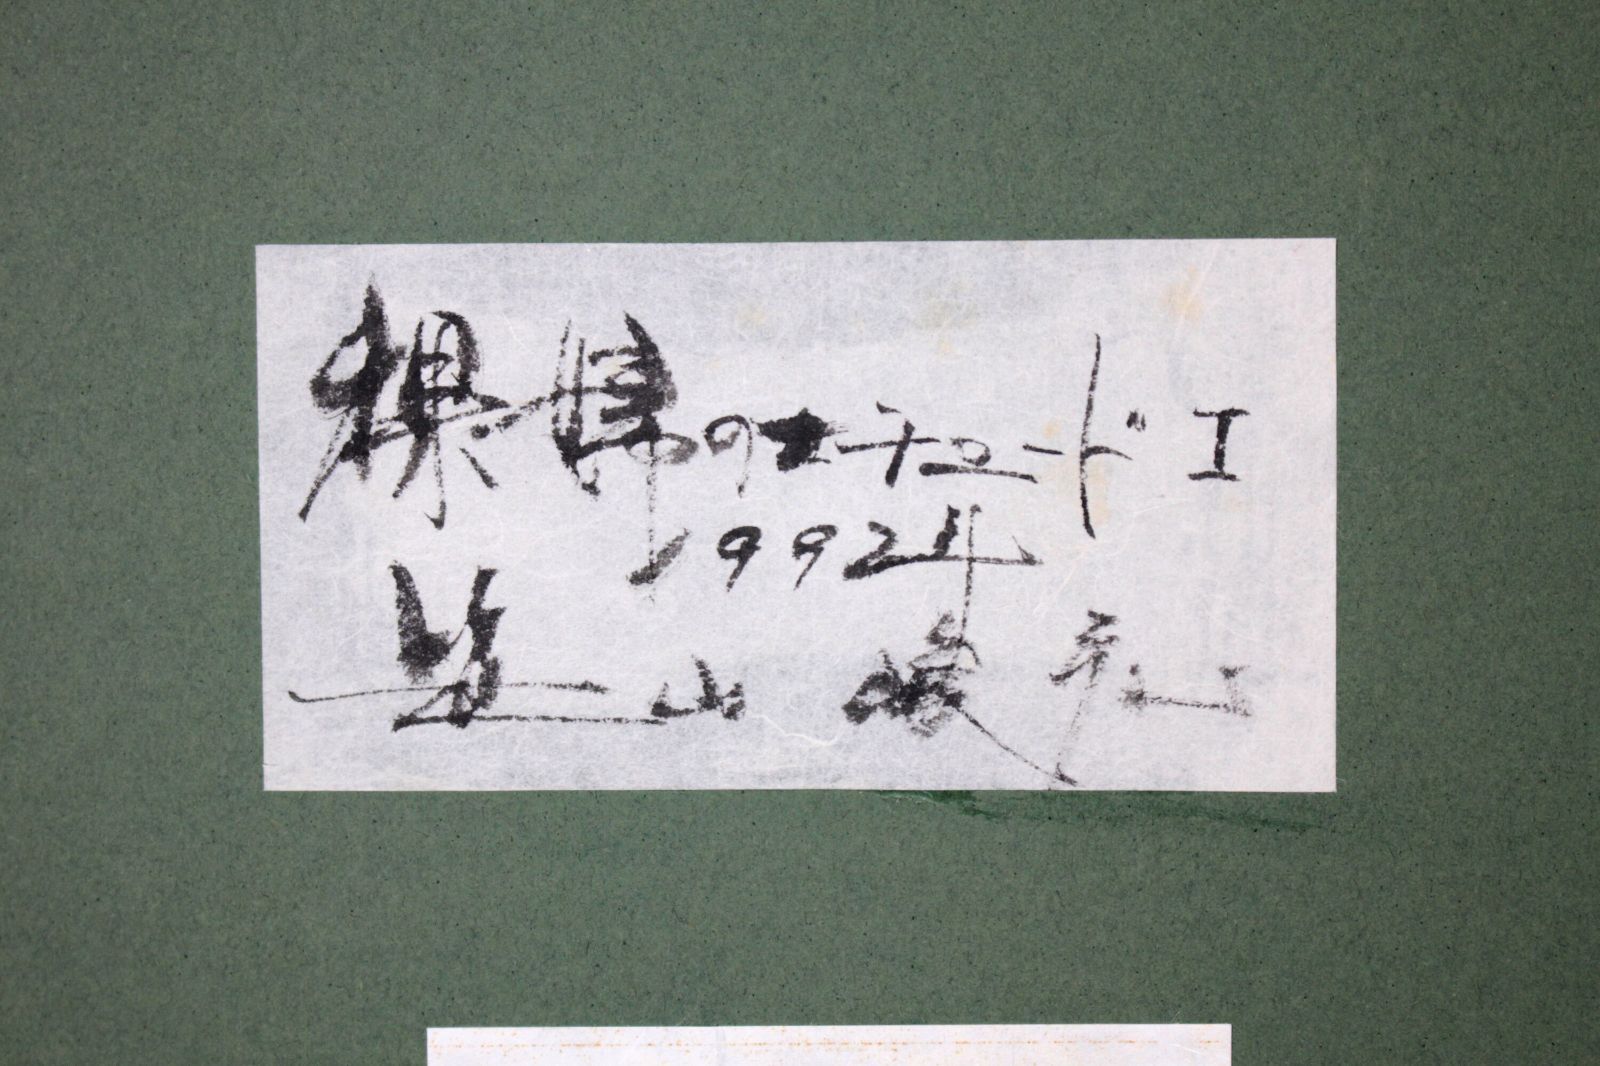 裸婦のエチュードI
1992年
笠山峻